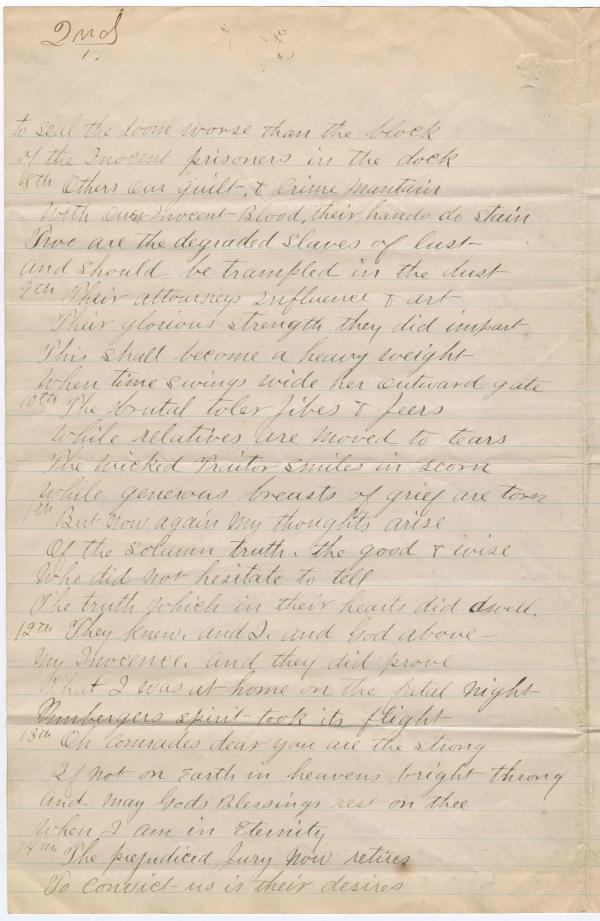 2nd
1.
to seal the doom worse than the block
of the Inocent prisoners in the dock
8th Others our guilt, & Crime Mantain
With our Inocent Blood, their hands do stain
Two are the degraded slaves of lust
and should be trampled in the dust
9th Their attourneys Influence & art
Their glorious strength they did impart
This shall become a heavy weight
When time swings wide her outward gate
10th The brutal toler jibes & jeers
While relatives are moved to tears
The wicked Traitor smiles in scorn
While generous breasts of grief are torn
11th But now again my thoughts arise
Of the solumn truth. the good & wise
Who did not hesitate to tell
The truth which in their hearts did dwell.
12th They knew. and I. and God above
My Inocence. and they did prove
That I was at home on the fatal night
Numbergers spirit took its flight
13th Oh Comrades dear you are the strong
If not on Earth in heavens bright throng
And may Gods Blessings rest on thee
When I am in Eternity
14th The prejudiced Jury now retires
To convict us is their desires